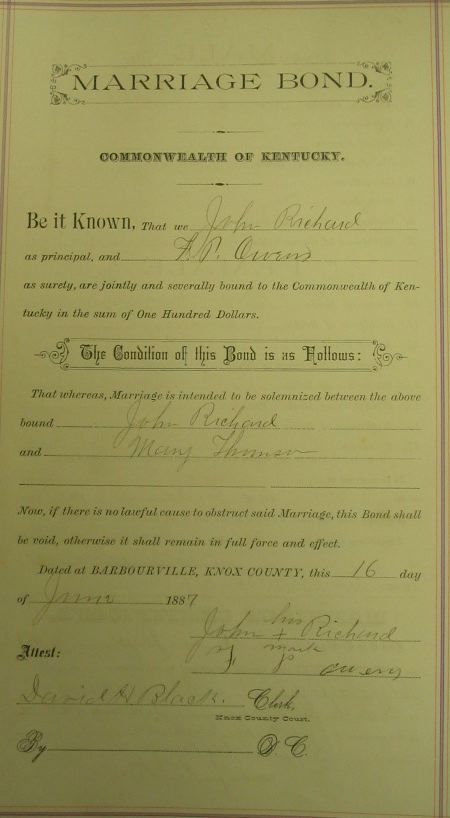 MARRIAGE BOND.
COMMONWEALTH OF KENTUCKY.
Be it Known, That we John Richard
as principal, and F. P. Owens
as surety, are jointly and severally bound to the Commonwealth of Ken-
tucky in the sum of One Hundred Dollars.
The Condition of this Bond is as Follows:
That whereas, Marriage is intended to be solemnized between the above
bound John Richard
and Mary
Now, if there is no lawful cause to obstruct said Marriage, this Bond shall
be void, otherwise it shall remain in full force and effect.
Dated at BARBOURVILLE, KNOX COUNTY, this 16 day
of June 1887
his
John + Richard
mark
Attest: Owens
David H Black. Clerk,
Knox County Court.
By D. C.